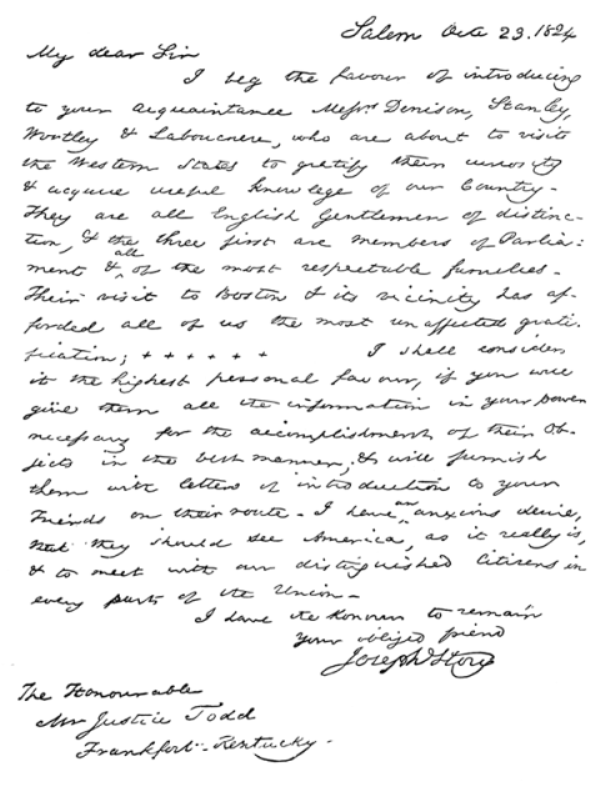 Salem Octr 23. 1824
My dear Sir
I beg the favour of introducing
to your acquaintance Messrs. Denison, Stanley,
Wortley & Labouchere, who are about to visit
the Western States to gratify their curiosity
& acquire useful knowlege of our Country -
They are all English Gentlemen of distinc-
tion, & the three first are members of Parlia:
all
ment & of the most respectable families -
Their visit to Boston & its vicinity has af-
forded all of us the most unaffected grati-
fication; + + + + + + I shall consider
it the highest personal favour, if you will
give them all the information in your power
necessary for the accomplishment of their Ob-
jects in the best manner, & will furnish
them with letters of introduction to your
Friends on their route - I have an anxious desire,
that they should see America, as it really is,
& to meet with our distinguished Citizens in
every part of the Union -
I have the honour to remain
your obliged friend
Joseph Story
The Honourable
Mr Justice Todd
Frankfort - Kentucky -